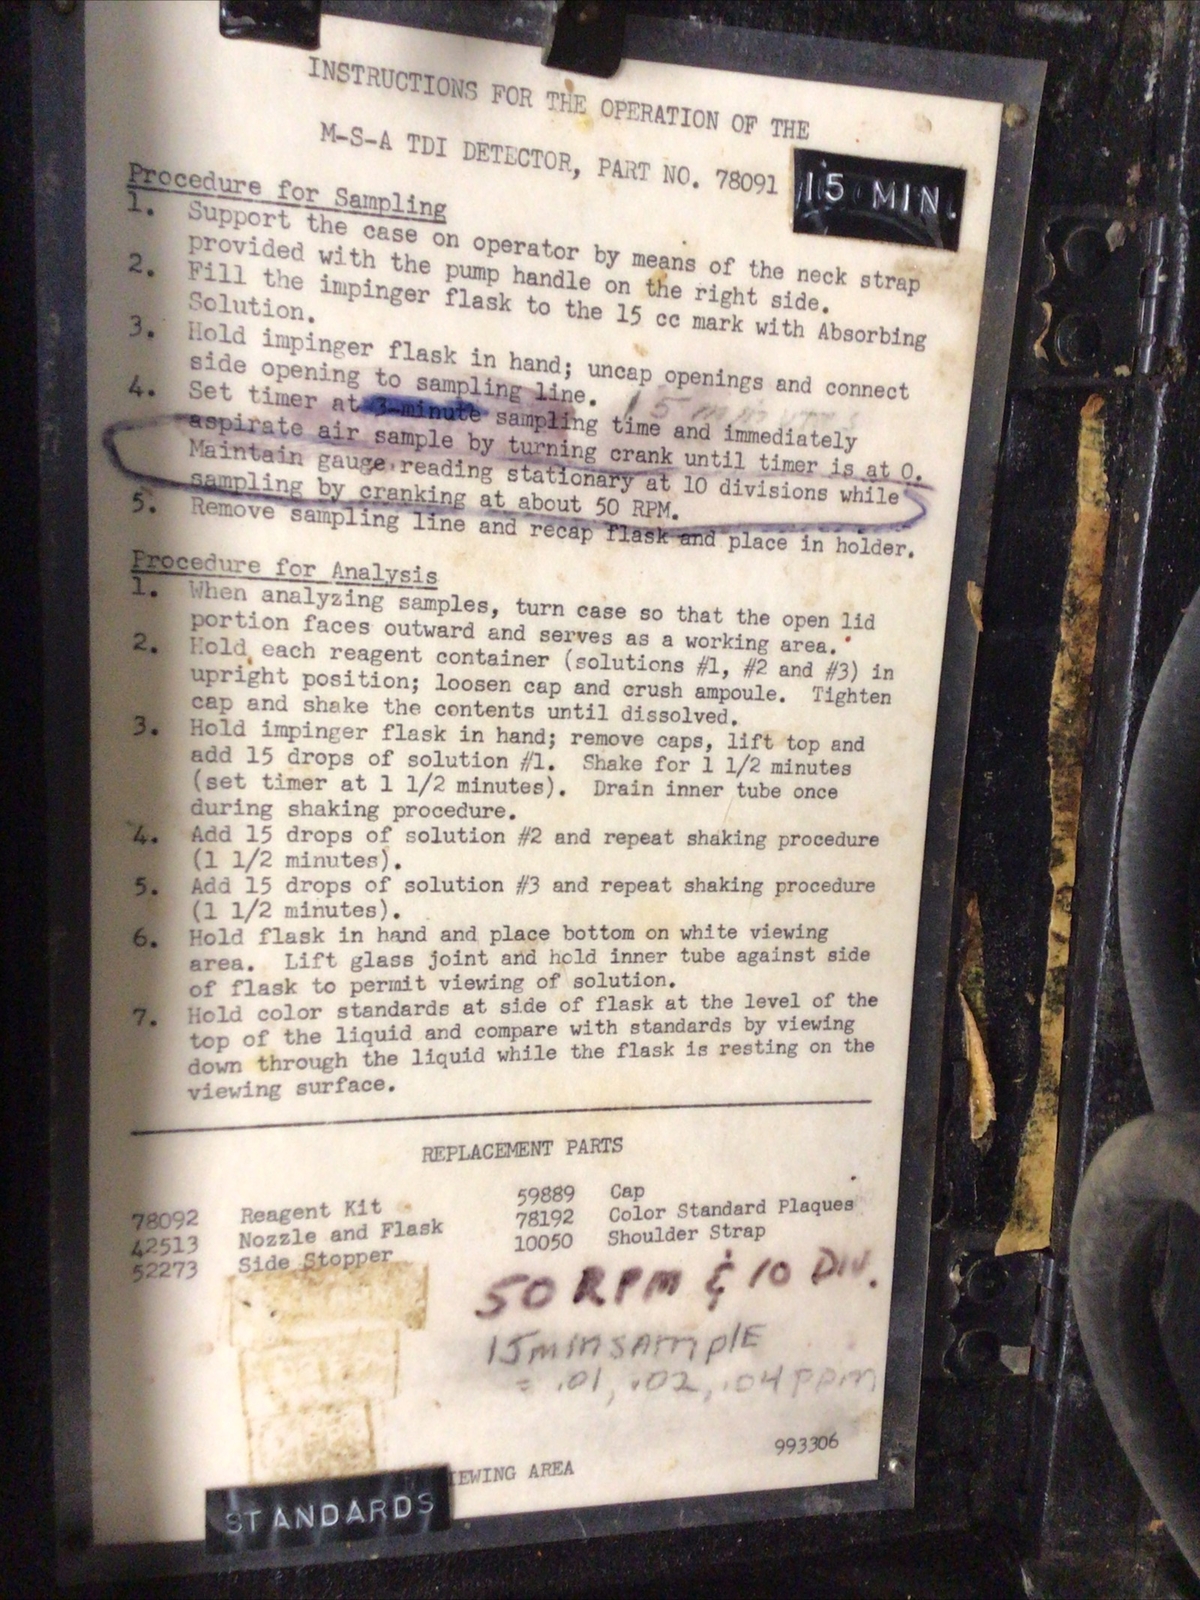 INSTRUCTIONS FOR THE OPERATION OF THE
M-S-A TDI DETECTOR, PART NO. 78091
15 MIN.
Procedure for Sampling
1. Support the case on operator by means of the neck strap
provided with the pump handle on the right side.
2. Fill the impinger flask to the 15 cc mark with Absorbing
Solution.
3. Hold impinger flask in hand; uncap openings and connect
side opening to sampling line.
15 minutes
4. Set timer at 3-minute sampling time and immediately
aspirate air sample by turning crank until timer is at 0.
Maintain gauge reading stationary at 10 divisions while
sampling by cranking at about 50 RPM.
5. Remove sampling line and recap flask and place in holder.
Procedure for Analysis
1. When analyzing samples, turn case so that the open lid
portion faces outward and serves as a working area.
2. Hold each reagent container (solutions #1, #2 and #3) in
upright position; loosen cap and crush ampoule. Tighten
cap and shake the contents until dissolved.
3. Hold impinger flask in hand; remove caps, lift top and
add 15 drops of solution #1. Shake for 1 1/2 minutes
(set timer at 1 1/2 minutes). Drain inner tube once
during shaking procedure.
4. Add 15 drops of solution #2 and repeat shaking procedure
(1 1/2 minutes).
5. Add 15 drops of solution #3 and repeat shaking procedure
(1 1/2 minutes).
6. Hold flask in hand and place bottom on white viewing
area. Lift glass joint and hold inner tube against side
of flask to permit viewing of solution.
7. Hold color standards at side of flask at the level of the
top of the liquid and compare with standards by viewing
down through the liquid while the flask is resting on the
viewing surface.
REPLACEMENT PARTS
78092 Reagent Kit
42513 Nozzle and Flask
52273 Side Stopper
59889 Cap
78192 Color Standard Plaques
10050 Shoulder Strap
50 RPM & 10 DIV.
15 min SAMPLE
= .01, .02, .04 PPM
993306
IEWING AREA
STANDARDS